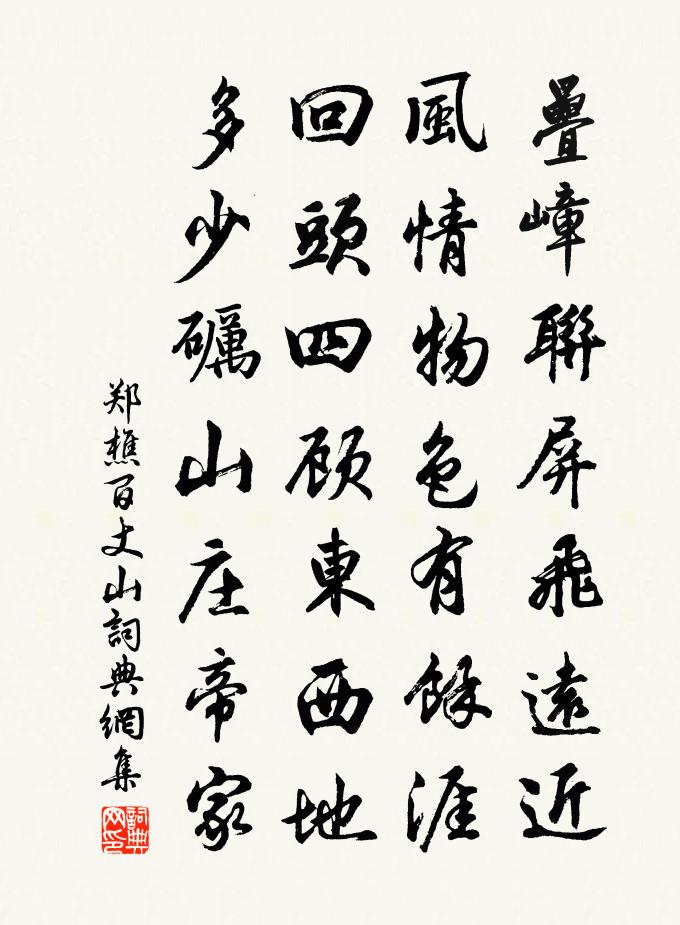 疊嶂聯屏飛遠近
風情物色有餘涯
回頭四顾東西地
多少礪山庄帝家
郑樵百丈山詞典網集
詞典网印